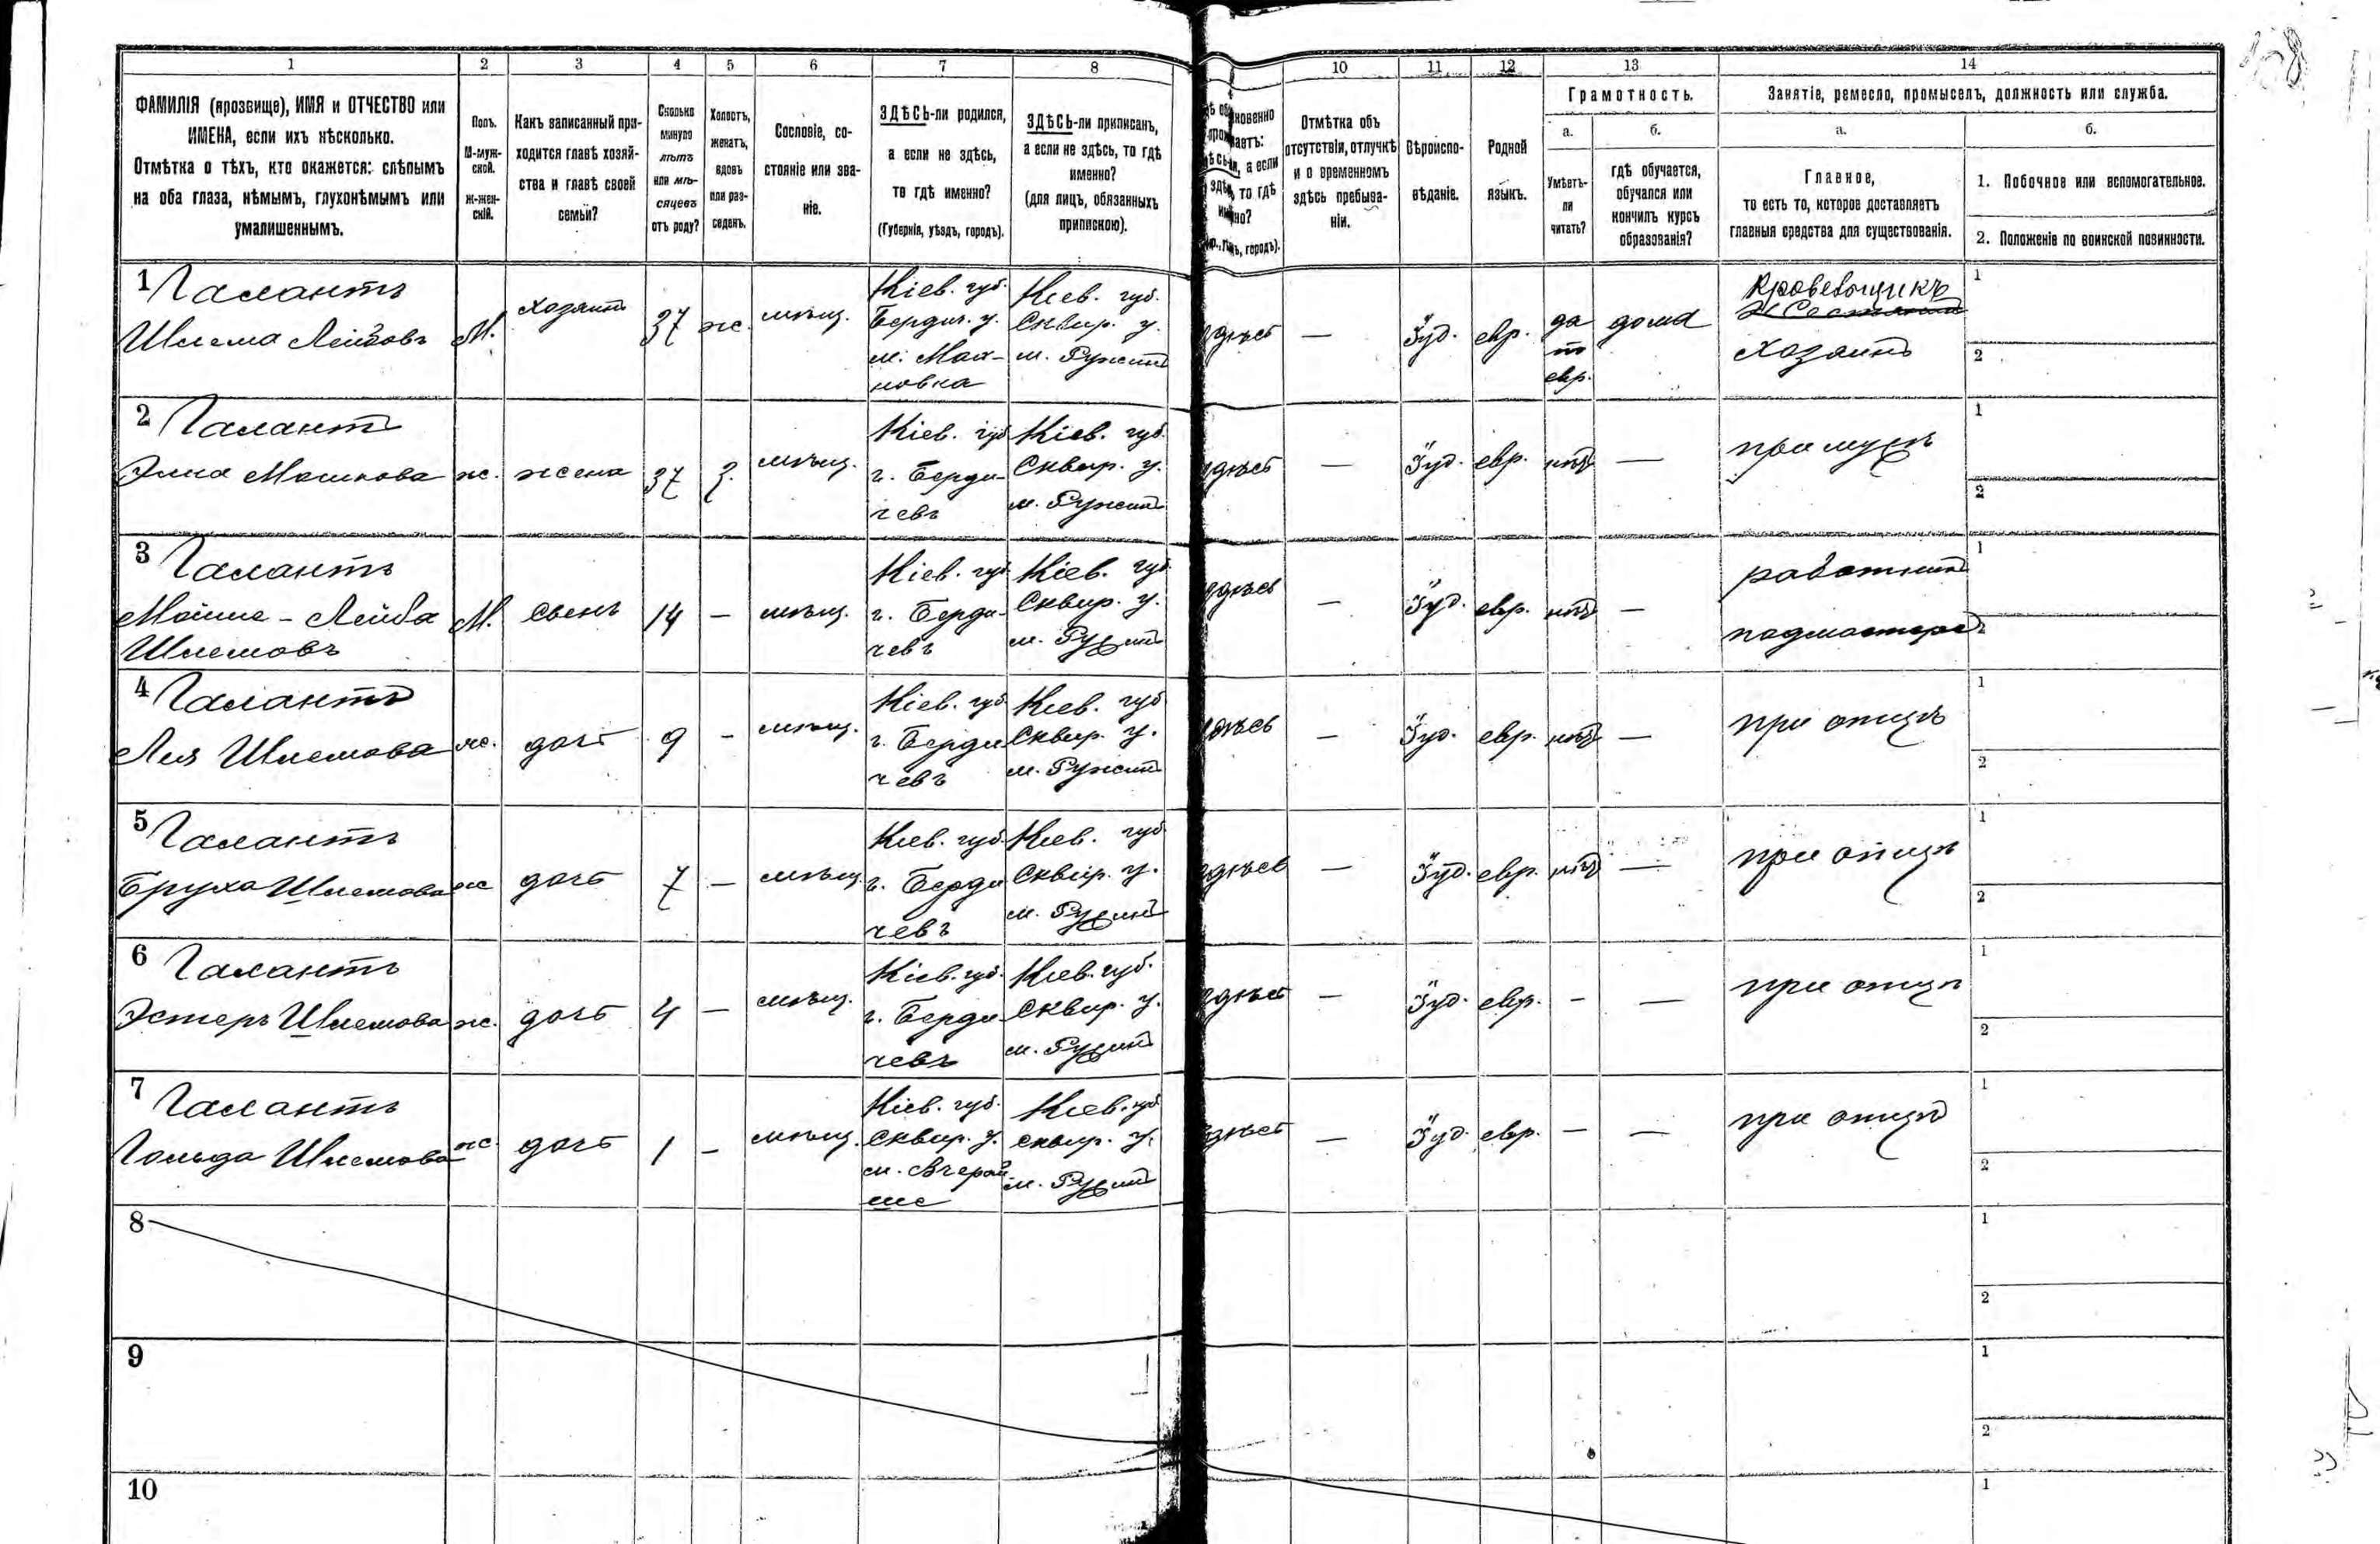 158
1 2 3 4 5 6 7 8 10 11 12 13 14
ФАМИЛІЯ (прозвище), ИМЯ и ОТЧЕСТВО или
ИМЕНА, если ихъ нѣсколько.
Отмѣтка о тѣхъ, кто окажется: слѣпымъ
на оба глаза, нѣмымъ, глухонѣмымъ или
умалишеннымъ.
Полъ.
М-муж-
ской.
Ж-жен-
скій.
Какъ записанный при-
ходится главѣ хозяй-
ства и главѣ своей
семьи?
Сколько
минуло
лѣтъ
или мѣ-
сяцевъ
отъ роду?
Холостъ,
женатъ,
вдовъ
или раз-
веденъ.
Сословіе, со-
стояніе или зва-
ніе.
ЗДѢСЬ-ли родился,
а если не здѣсь,
то гдѣ именно?
(Губернія, уѣздъ, городъ).
ЗДѢСЬ-ли приписанъ,
а если не здѣсь, то гдѣ
именно?
(для лицъ, обязанныхъ
припискою).
а если
то гдѣ
городъ).
Отмѣтка объ
отсутствіи, отлучкѣ
и о временномъ
здѣсь пребыва-
ніи.
Вѣроиспо-
вѣданіе.
Родной
языкъ.
Грамотность.
а.
Умѣетъ-
ли
читать?
б.
гдѣ обучается,
обучался или
кончилъ курсъ
образованія?
Занятіе, ремесло, промыселъ, должность или служба.
а.
Главное,
то есть то, которое доставляетъ
главныя средства для существованія.
б.
1. Побочное или вспомогательное.
2. Положеніе по воинской повинности.
1 Галантъ
Шлема Лейбовъ
М.
хозяинъ
37
ж.
мѣщ.
Кіев. губ.
Бердич. у.
м. Мах-
новка
Кіев. губ.
Сквир. у.
м. Ружинъ
здѣсь
—
Іуд.
евр.
да
по
евр.
дома
Кровельщикъ
хозяинъ
1
2
2 Галантъ
Элка Мошкова
ж.
жена
37
З.
мѣщ.
Кіев. губ
г. Берди-
чевъ
Кіев. губ.
Сквир. у.
м. Ружинъ
здѣсь
—
Іуд.
евр.
нѣтъ
—
при мужѣ
1
2
3 Галантъ
Мойше - Лейба
Шлемовъ
М.
сынъ
14
—
мѣщ.
Кіев. губ
г. Берди-
чевъ
Кіев. губ
Сквир. у.
м. Ружинъ
здѣсь
—
Іуд.
евр.
нѣтъ
—
работникъ
подмастерье
1
2
4 Галантъ
Лея Шлемова
ж.
дочь
9
-
мѣщ.
Кіев. губ
г. Берди
чевъ
Кіев. губ
Сквир. у.
м. Ружинъ
здѣсь
—
Іуд.
евр.
нѣтъ
—
при отцѣ
1
2
5 Галантъ
Бруха Шлемова
ж
дочь
7
—
мѣщ.
Кіев. губ.
г. Берди
чевъ
Кіев. губ
Сквир. у.
м. Ружинъ
здѣсь
—
Іуд.
евр.
нѣтъ
—
при отцѣ
1
2
6 Галантъ
Эстеръ Шлемова
ж.
дочь
4
—
мѣщ.
Кіев. губ.
г. Берди
чевъ
Кіев. губ.
Сквир. у.
м. Ружинъ
здѣсь
—
Іуд.
евр.
-
—
при отцѣ
1
2
7 Галантъ
Гольда Шлемова
ж.
дочь
1
-
мѣщ.
Кіев. губ.
Сквир. у.
м. Вчерай
ше
Кіев. губ
Сквир. у.
м. Ружинъ
здѣсь
—
Іуд.
евр.
—
—
при отцѣ
1
2
8
1
2
9
1
2
10
1